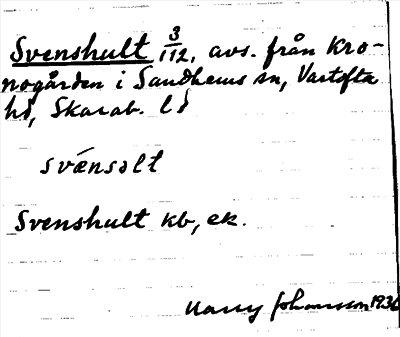 Svenshult 3/112, avs. från Kro-
nogården i Sandhems sn, Vartofta
hd, Skarab. ld
svénsəlt
Svenshult kb, ek.
Harry Johansson 1936